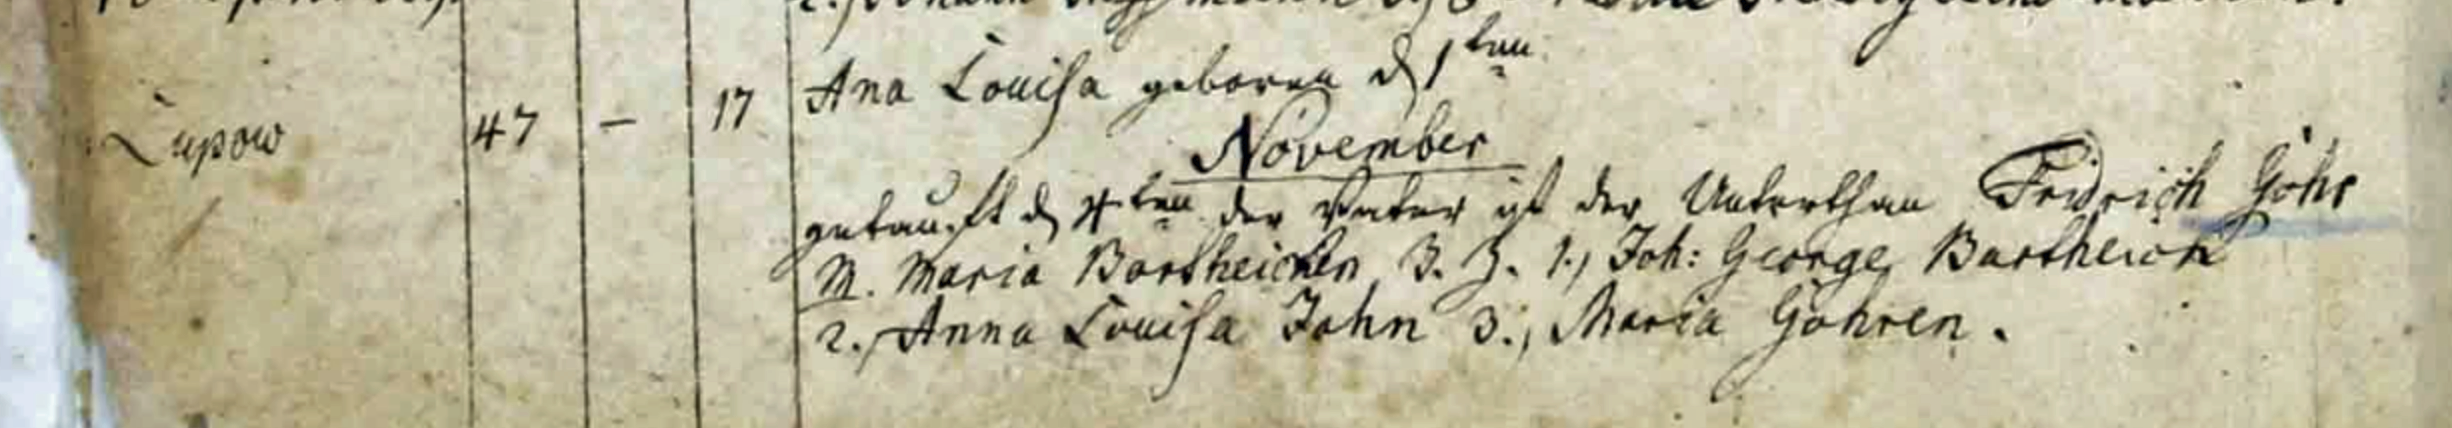 Lupow 47 – 17 Ana Louisa geboren d 1ten
November
getauft d 4ten der Vater ist der Unterthan Fridrich Göhr
M. Maria Bartheichen 3. Z. 1., Joh: George Bartheich
2., Anna Louisa John 3., Maria Göhren.